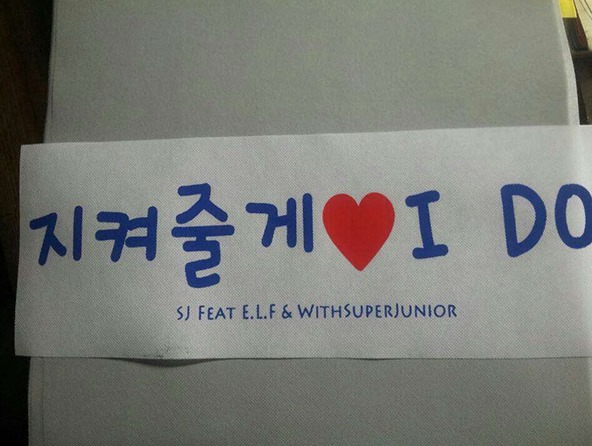 지켜줄게♥I DO
SJ FEAT E.L.F & WITHSUPERJUNIOR